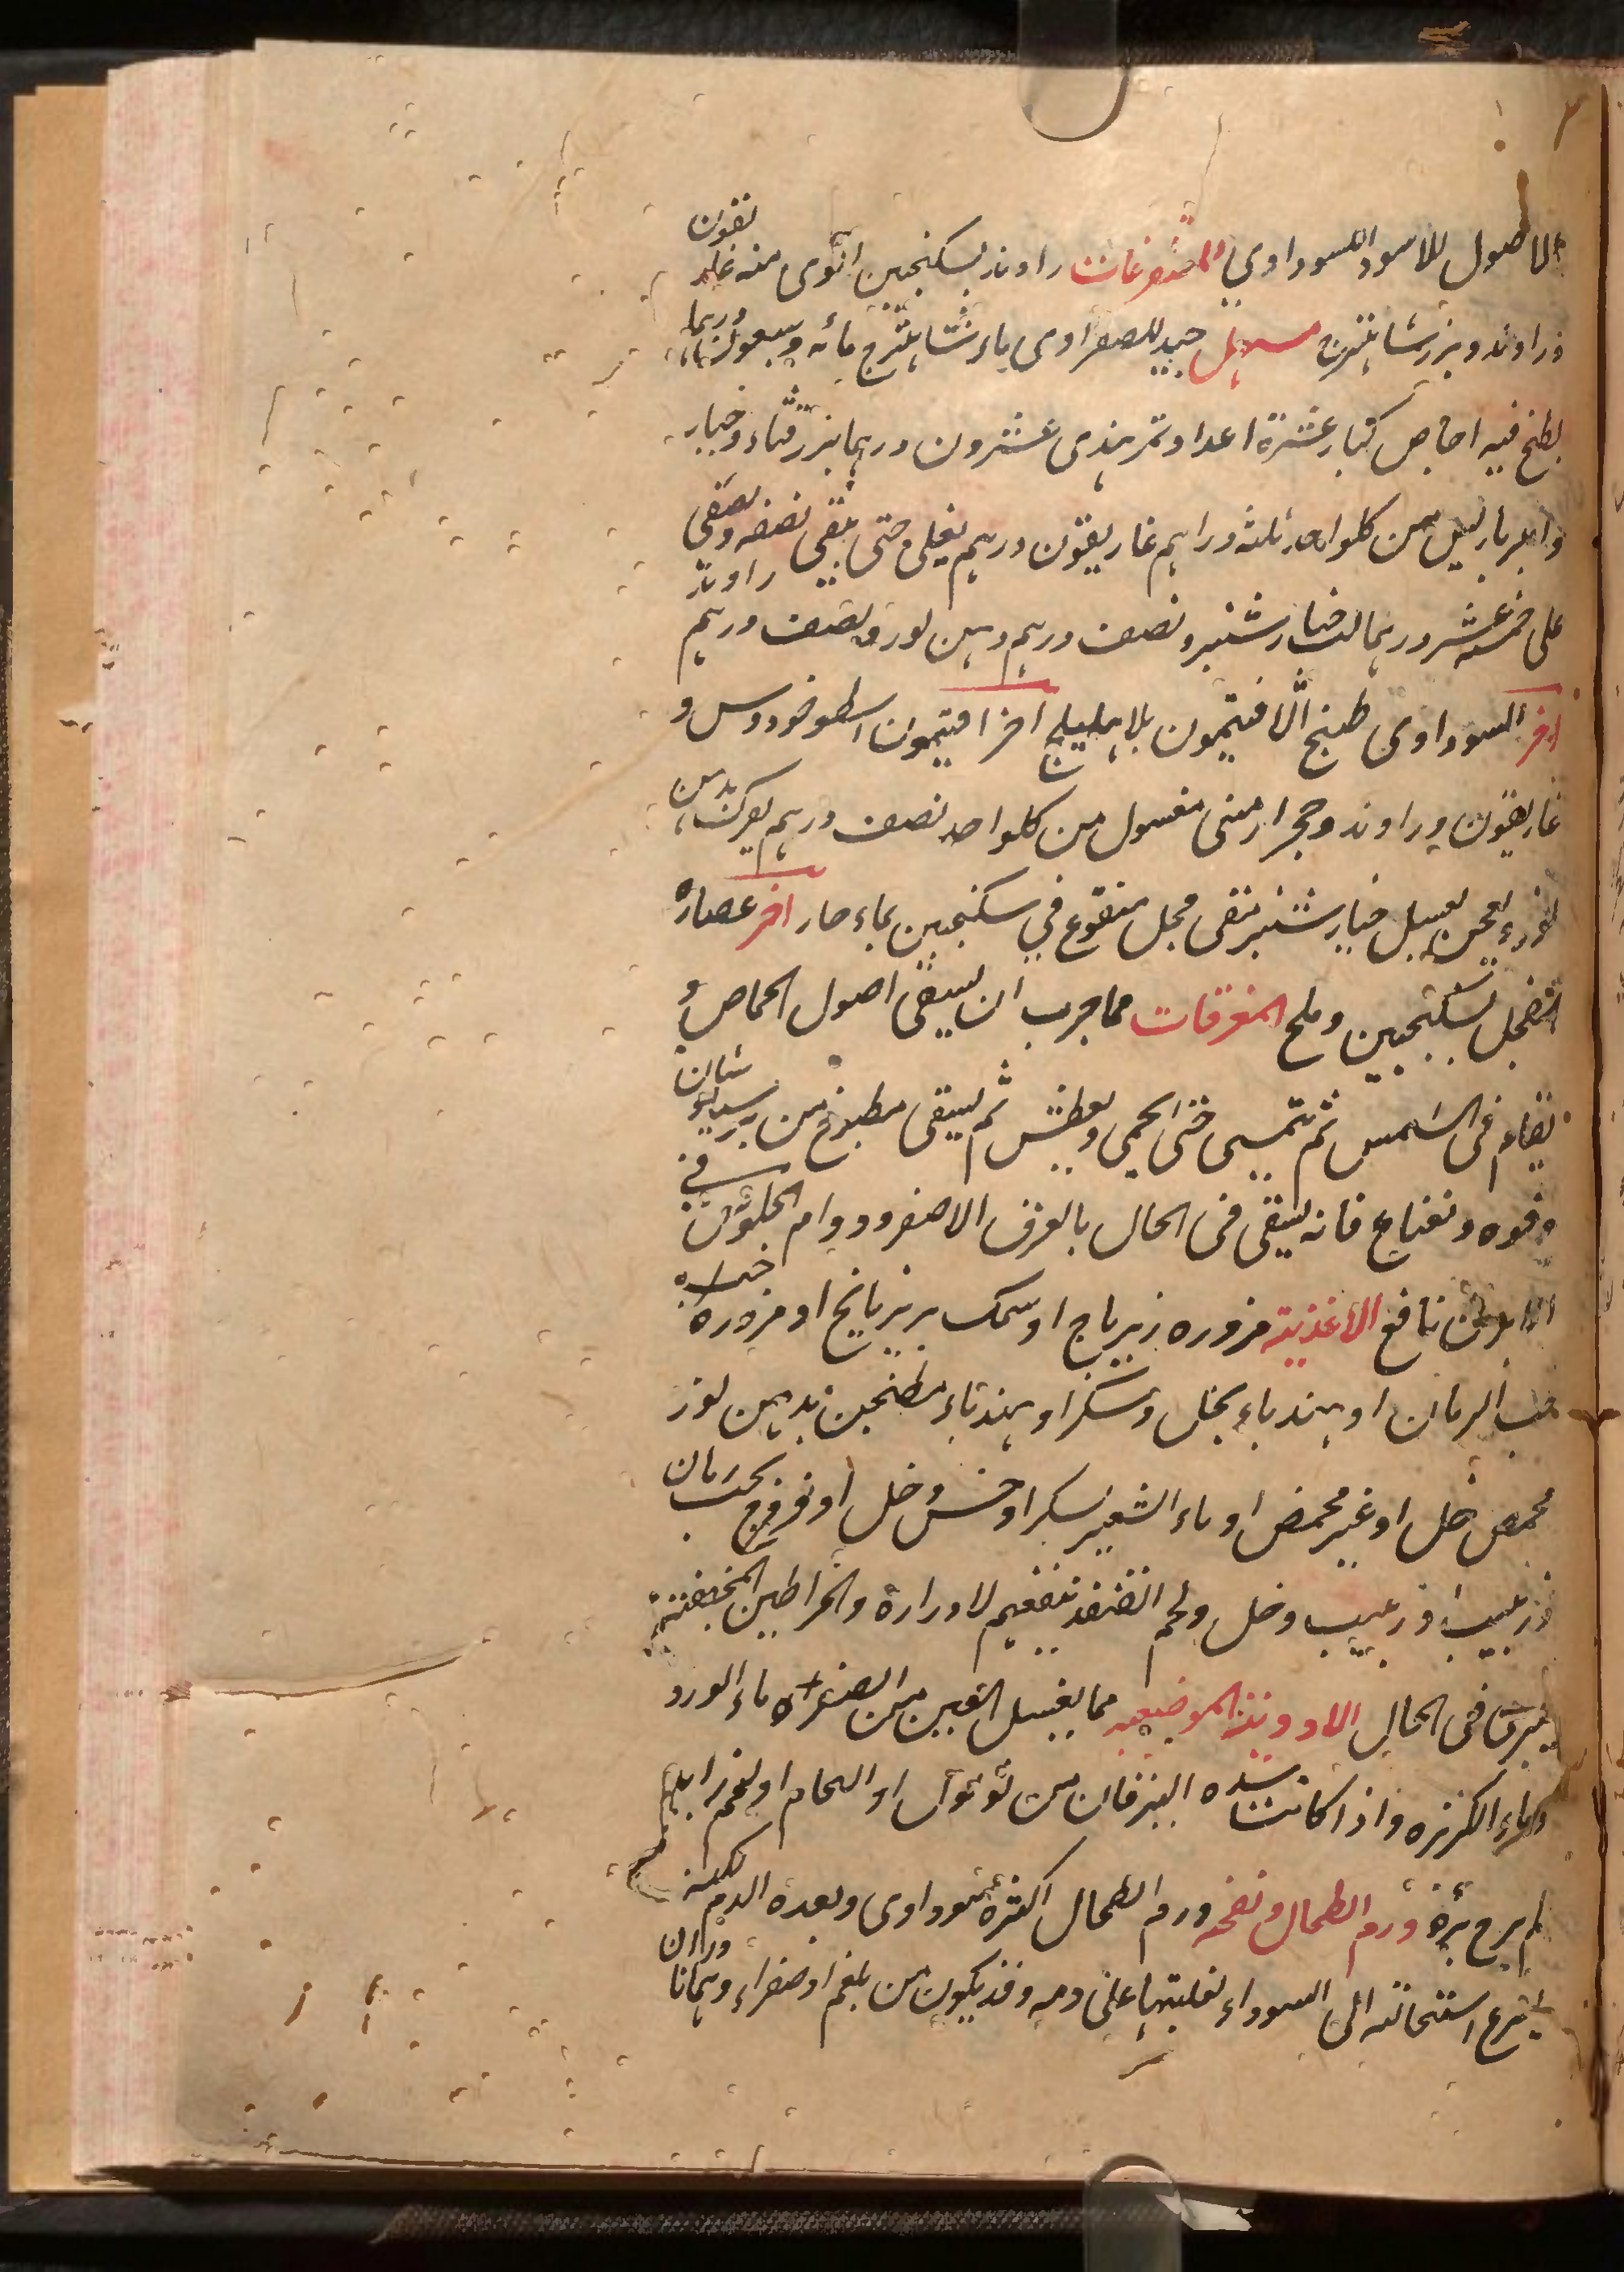 الاصول للاسود السوداوي المستفرغات راوند بسكنجبين اقوى منه غاريقون
وراوند وبزر شاهترج مسهل جيد للصفراوى ماء شاهترج مائه وسبعون درهما
يطبخ فيه اجاص كبار عشرة اعدا وتمر هندى عشرون درهما بزر قثاء وخيار
وامبرباريس من كلواحد ثلثه دراهم غاريقون درهم يغلى حتى يبقى نصفه ويصفى
على خمسه عشر درهما لب خيارشنبر ونصف درهم دهن لوز ونصف درهم راوند
اخر السوداوى طبيخ الافتيمون بلا هليلج اخر افتيمون اسطوخودوس و
غاريقون وراوند وحجر ارمنى مغسول من كلواحد نصف درهم يعرك بدهن
لوز ويعجن بعسل خيارشنبر منقى محل منقوع في سكنجبين بماء حار اخر عصارة
الفجل بسكنجبين وملح المعرقات مما جرب ان يسقى اصول الحماض و
يقام فى الشمس ثم يتمشى حتى يحمى ويعطش ثم يسقى مطبوخ من برسياوشان
وفوه ونعناع فانه يبقى فى الحال بالعرق الاصفر ودوام الجلوس في
الابزن نافع الاغذية مزوره زيرباج او سمك بزيرباج او مزورة
حب الرمان او هندباء بخل وسكر او هندباء مطنجن بدهن لوز
محمص بخل او غير محمض او ماء الشعير بسكر او خس وخل او فروج بحب رمان
وزبيب او زبيب وخل ولحم القنفذ ينفعهم لادراره والخراطين المجففة
يبرى فى الحال الادوية الموضعيه مما يغسل العين من الصفرة ماء الورد
وماء الكزبره واذا كانت شده اليرقان من ثؤلول او التحام او لحم زايد
لم يرج برؤه ورم الطحال ونفخه ورم الطحال اكثره سوداوى وبعده الدم لكنه
يسرع استحالته الى السوداء لغلبتها على دمه وقد يكون من بلغم او صفراء وهمانا دران